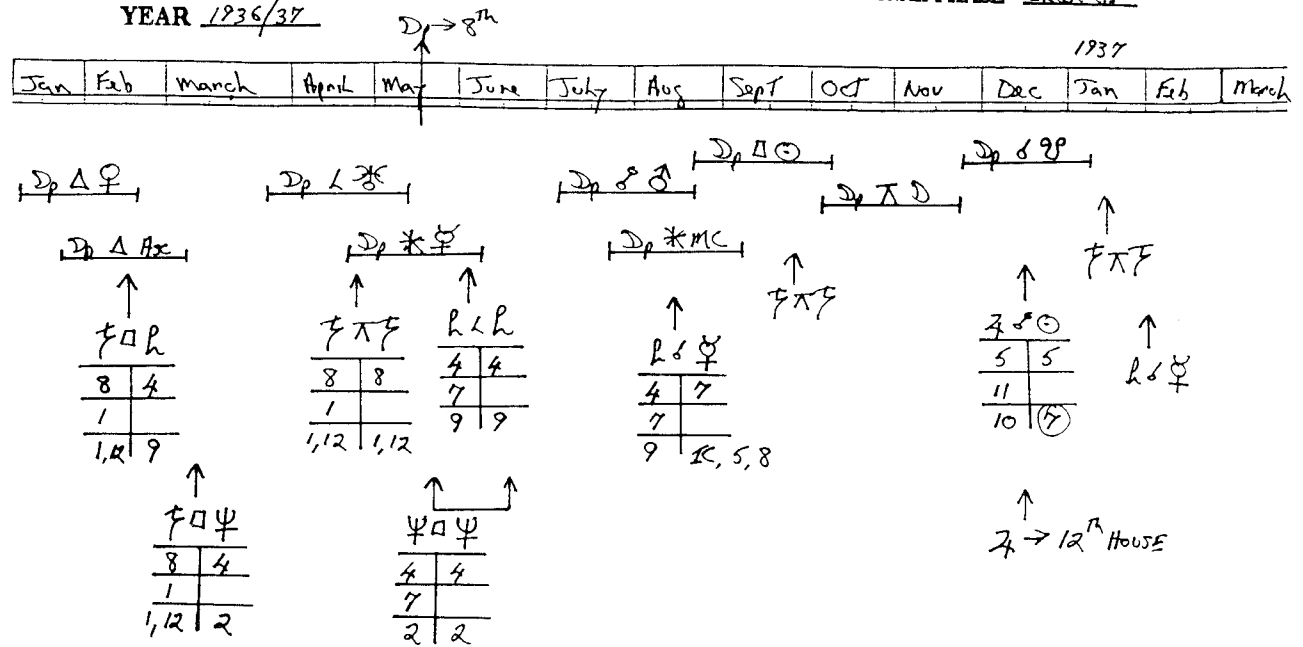 YEAR 1936/37
☽p → 8th
1937
Jan Feb March April May June July Aug Sept Oct Nov Dec Jan Feb March
☽p □ ☉
☽p ☌ ♅
☽p △ ♀
☽p ∠
☽p ☍ ♂
☽p ⚻ ☽
☽p △ Ax
☽p ⚹ ☿
☽p ⚹ MC
♄ □ ♄
8 4
1
1,12 9
8 8
1
1,12 1,12
4 4
7
9 9
☌ ☿
4 7
7
9 IC, 5, 8
♃ ☍ ☉
5 5
11
10 7
☌ ☿
□ ♆
8 4
1
1,12 2
♆ □ ♆
4 4
7
2 2
♃ → 12th HOUSE